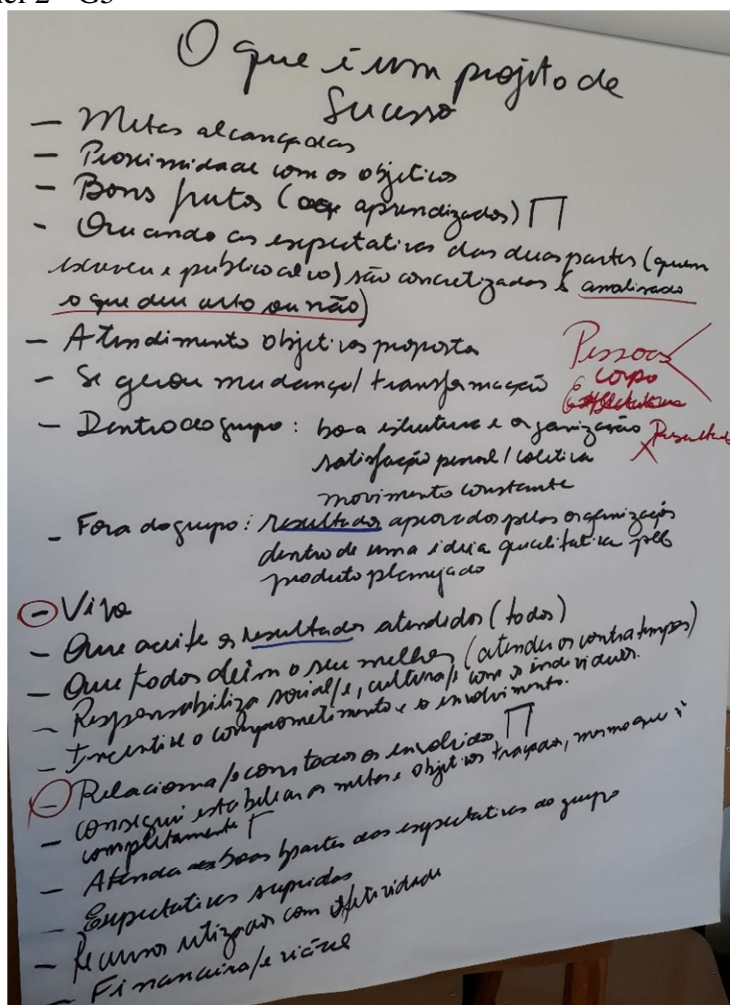 O que é um projeto de
Sucesso
- Metas alcançadas
- Proximidade com os objetivos
- Bons frutos (aprendizados)
- Quando as expectativas das duas partes (quem
escreveu e público alvo) são concretizadas e analisado
o que deu certo ou não)
- Atendimento objetivos proposta
- Se gerou mudança/transformação
Pessoas
corpo
- Dentro do grupo: boa estrutura e organização
Resultado
satisfação pessoal/coletiva
movimento constante
- Fora do grupo: resultados aprovados pelas organizações
dentro de uma ideia qualitativa pelo
produto planejado
- Viva
- Que aceite os resultados atendidos (todos)
- Que todos deem o seu melhor (atender os contratempos)
- Responsabiliza social/e, cultural/e com os indivíduos.
- Incentive o comprometimento e o envolvimento.
- Relaciona/o com todos os envolvidos
- conseguir estabelecer as metas e objetivos traçados, mesmo que ñ
completamente
- Atenda boas partes das expectativas do grupo
- Expectativas supridas
- Recursos utilizados com efetividade
- Financeira/e viável